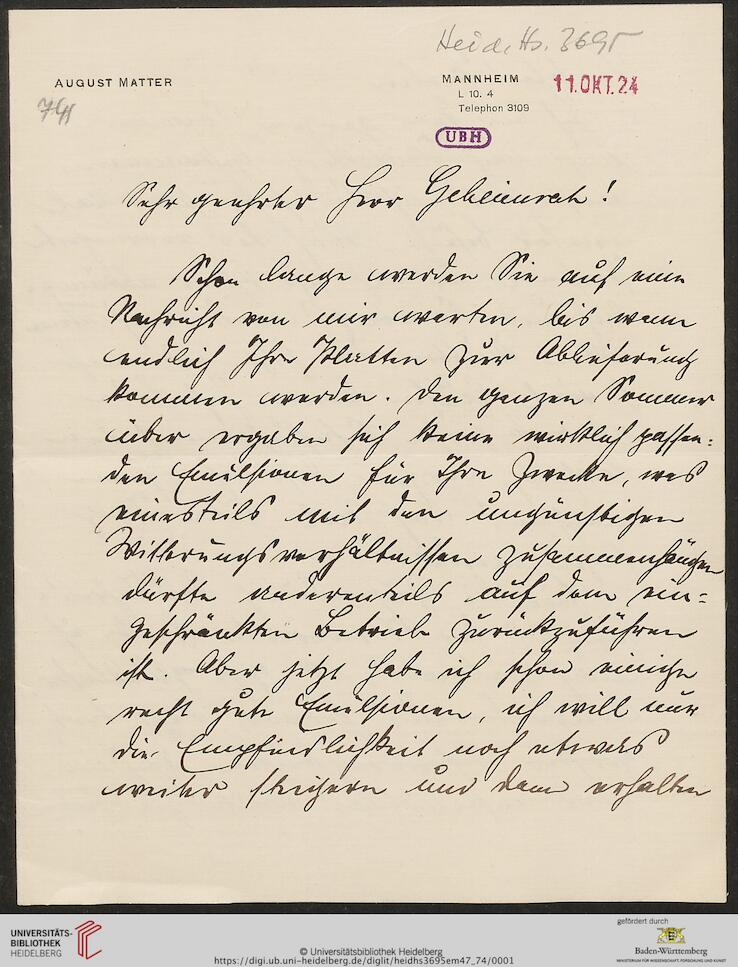 Heid. Hs. 3695
AUGUST MATTER
MANNHEIM
L 10. 4
Telephon 3109
11. OKT. 24
74
UBH
Sehr geehrter Herr Geheimrath!
Schon lange werden Sie auf eine
Nachricht von mir warten, bis wann
endlich Ihre Platten zur Ablieferung
kommen werden. Den ganzen Sommer
über ergaben sich keine wirklich passen=
den Emulsionen für Ihre Zwecke, was
einesteils mit den ungünstigen
Witterungsverhältnissen zusammenhängen
dürfte anderenteils auf dem ein=
geschränkten Betrieb zurückzuführen
ist. Aber jetzt habe ich schon einige
recht gute Emulsionen, ich will nur
die Empfindlichkeit noch etwas
weiter steigern und dann erhalten
UNIVERSITÄTS-
BIBLIOTHEK
HEIDELBERG
© Universitätsbibliothek Heidelberg
https://digi.ub.uni-heidelberg.de/diglit/heidhs3695em47_74/0001
gefördert durch
Baden-Württemberg
MINISTERIUM FÜR WISSENSCHAFT, FORSCHUNG UND KUNST